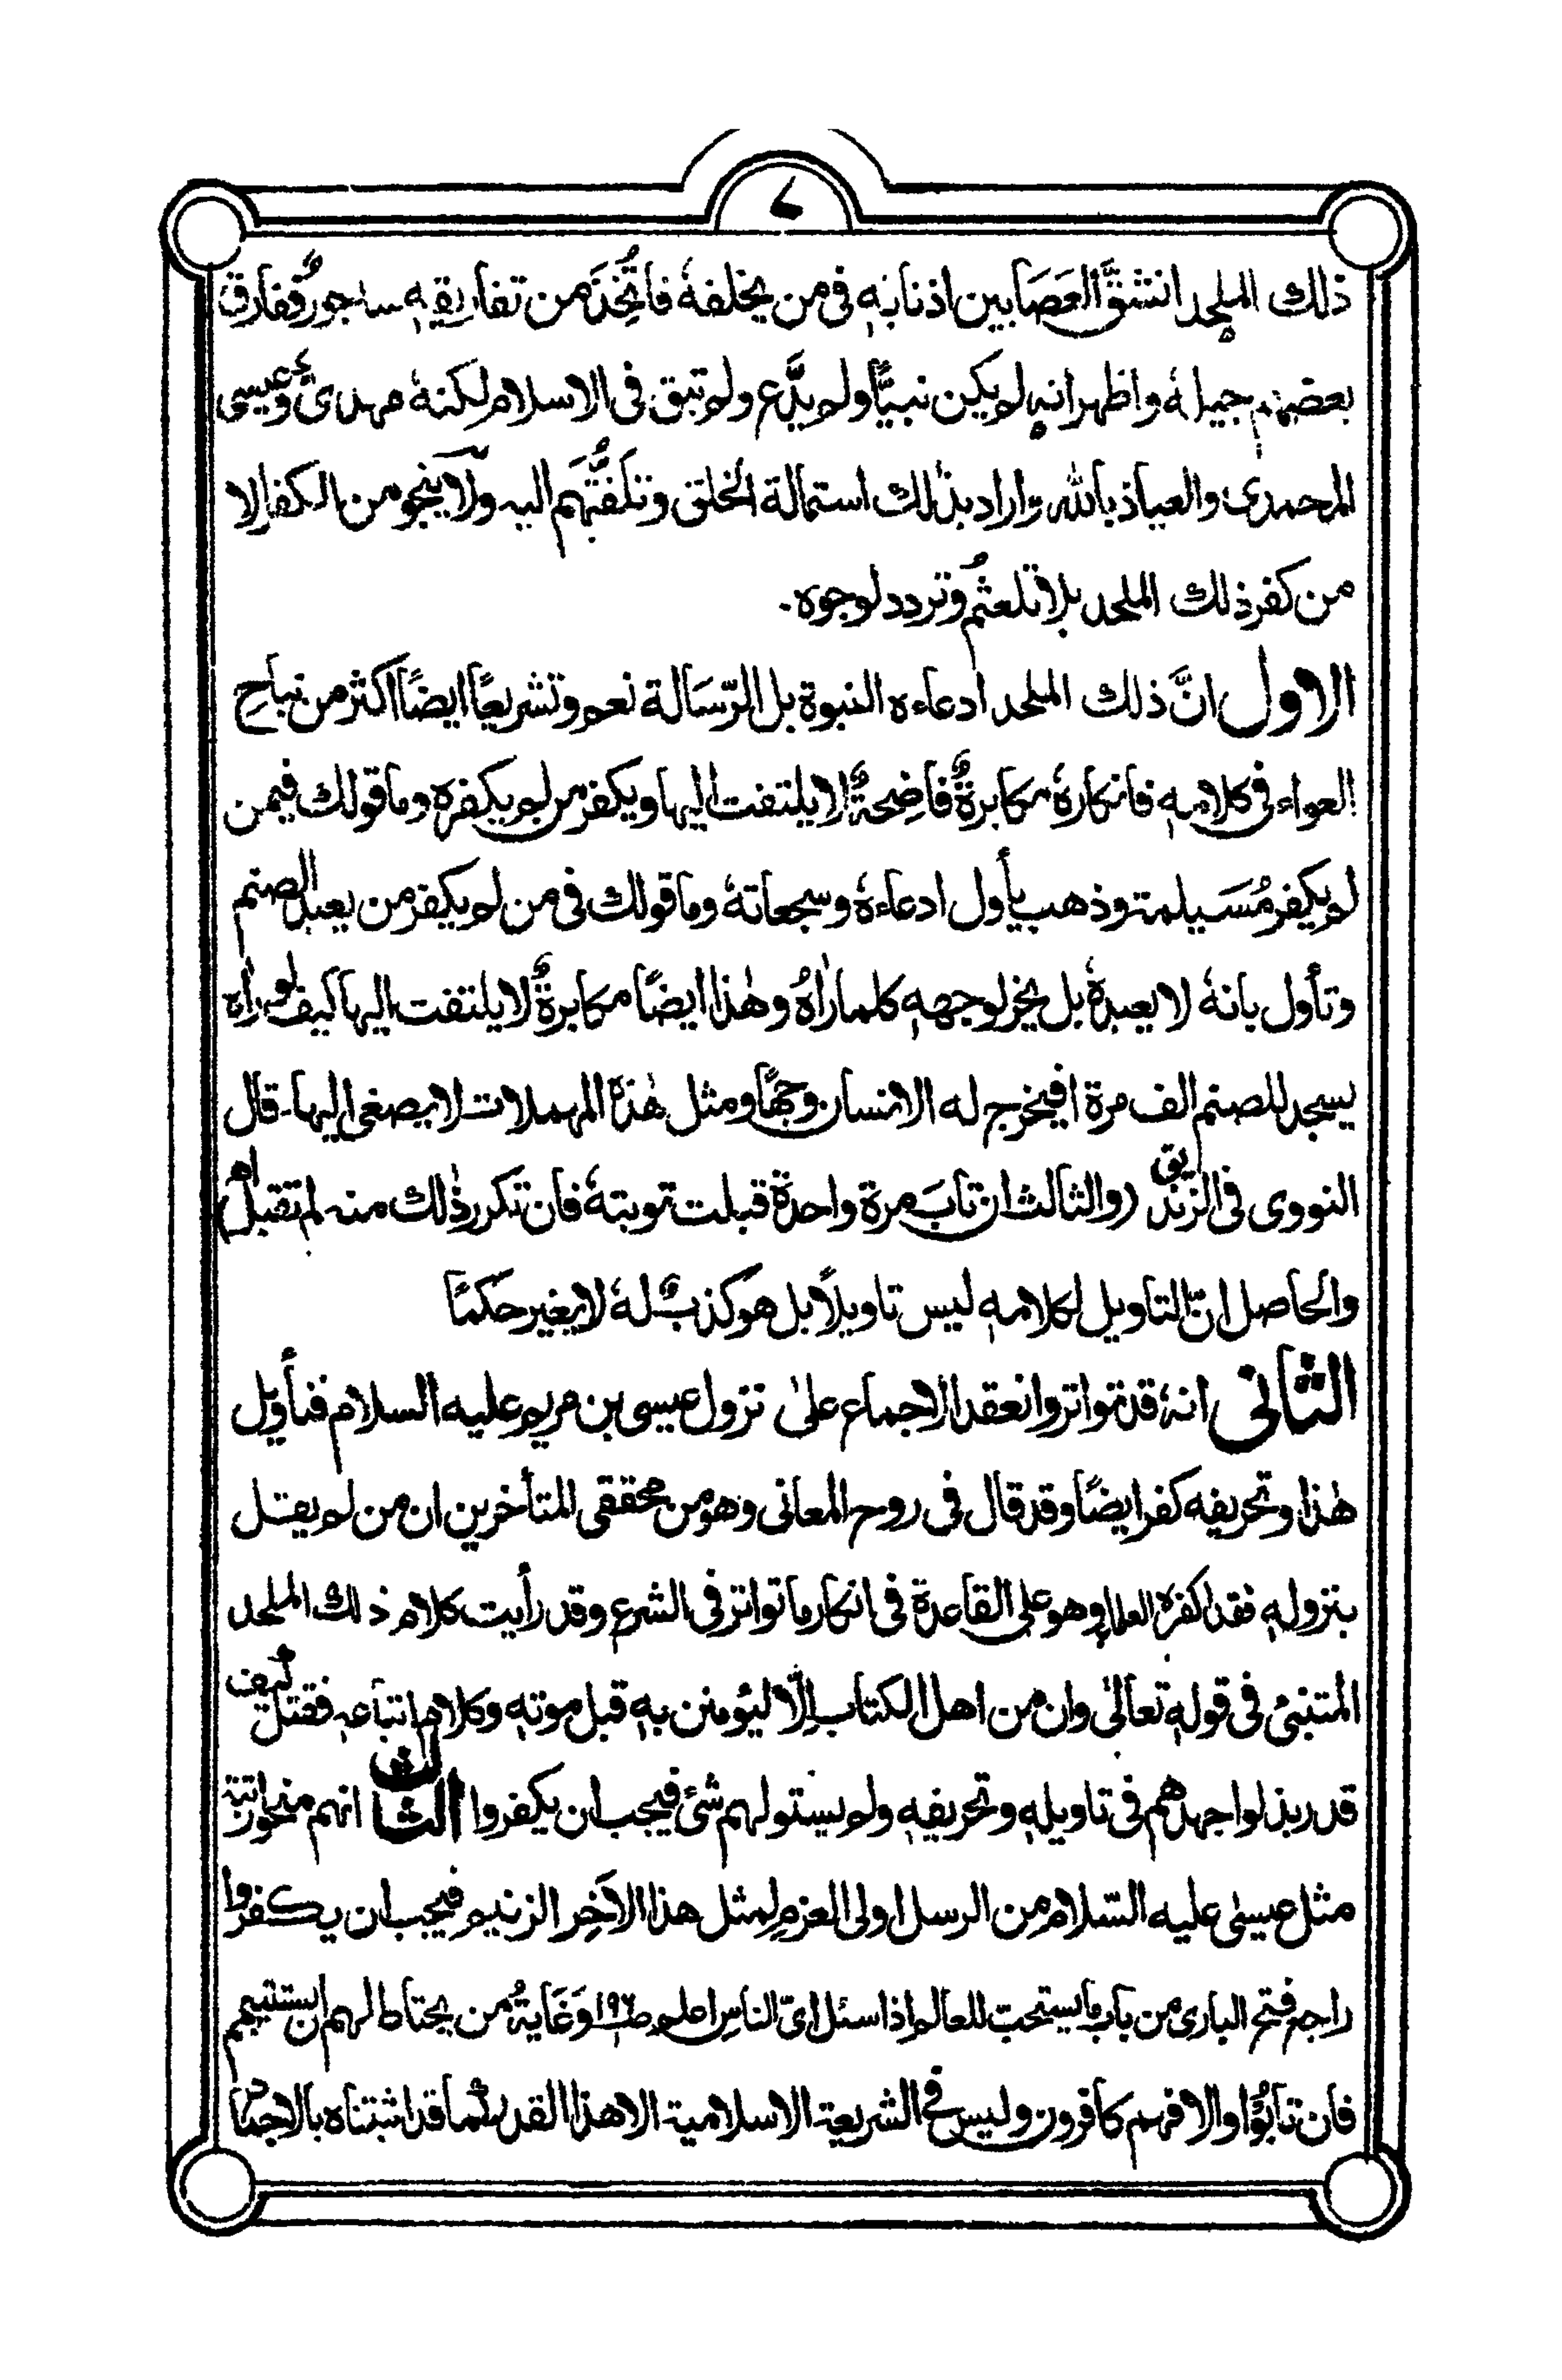 ۷
ذلك الملحد انشقَّ العَصَا بين اذنابهٖ فى من يخلفهٗ فاتُّخِذَ من تفاريقهٖ ساجورٌ ففارق
بعضهم جيلهٗ واظهر انهٖ لم يكن نبيًّا ولم يدَّع ولم تبق فى الاسلام لكنهٗ مهدىٌ وعيسى
المحمدى والعياذ بالله واراد بذٰلك استمالة الخلق وتلفُّتَهَم اليه ولا ينجو من الكفر الا
من كفر ذلك الملحد بلا تلعثُم وتردد لوجوه۔
الاول انَّ ذلك الملحد ادعاءه النبوة بل الرّسَالة نعم وتشريعًا ايضًا اكثر من نباحِ
العواء فى كلامهٖ فانكارهٗ مكابرةٌ فاضِحةٌ لا يلتفت اليها ويكفر من لم يكفره وما قولك فيمن
لم يكفر مُسَيلمة وذهب يأول ادعاءهٗ وسجعاتهٗ وما قولك فى من لم يكفر من يعبد الصنم
وتأول بانهٗ لا يعبدهٗ بل يخر لوجههٖ كلما راٰهُ وهٰذا ايضًا مكابرةٌ لا يلتفت اليها كيف لو راٰه
يسجد للصنم الف مرة افيخرج له الانسان وجهًا ومثل هٰذه المهملات لا يصغى اليها۔ قال
النووى فى الزنديق (والثالث ان تابَ مرة واحدة قبلت توبتهٗ فان تكرر ذٰلك منه لم تقبل اھ)
والحاصل انّ التاويل لكلامهٖ ليس تاويلاً بل هو كذبٌ لهٗ لا يغير حكمًا
الثانى انهٗ قد تواتر وانعقد الاجماع علىٰ نزول عيسى بن مريم عليه السلام فتأويل
هٰذا وتحريفه كفر ايضًا وقد قال فى روح المعانى وهو من محققى المتأخرين ان من لم يقل
بنزولهٖ فقد اكفره العلماء وهو على القاعدة فى انكار ما تواتر فى الشرع وقد رأيت كلام ذلك الملحد
المتنبئ فى قولهٖ تعالىٰ وان من اهل الكتاب اِلّا ليؤمنن بهٖ قبل موتهٖ وكلام اتباعهٖ فقتل كيف
قد ربذلوا جهدهم فى تاويلهٖ وتحريفهٖ ولم يستو لهم شئ فيجب ان يكفروا الثالث انهم
مثل عيسىٰ عليه السّلام من الرسل اولى العزم لمثل هذا الاٰخِر الزنيم فيجب ان يكفروا
راجع فتح البارى من باب ما يستحب للعالم اذا سئل اىّ الناس اعلم ص۱۹۶ وَغَايةُ من يحتاط لهم ان يستتيبهم
فان تابُوْا والا فهم كافرون وليس فى الشريعة الاسلامية الا هذا القدر كما قد اثبتناه بالاجماع